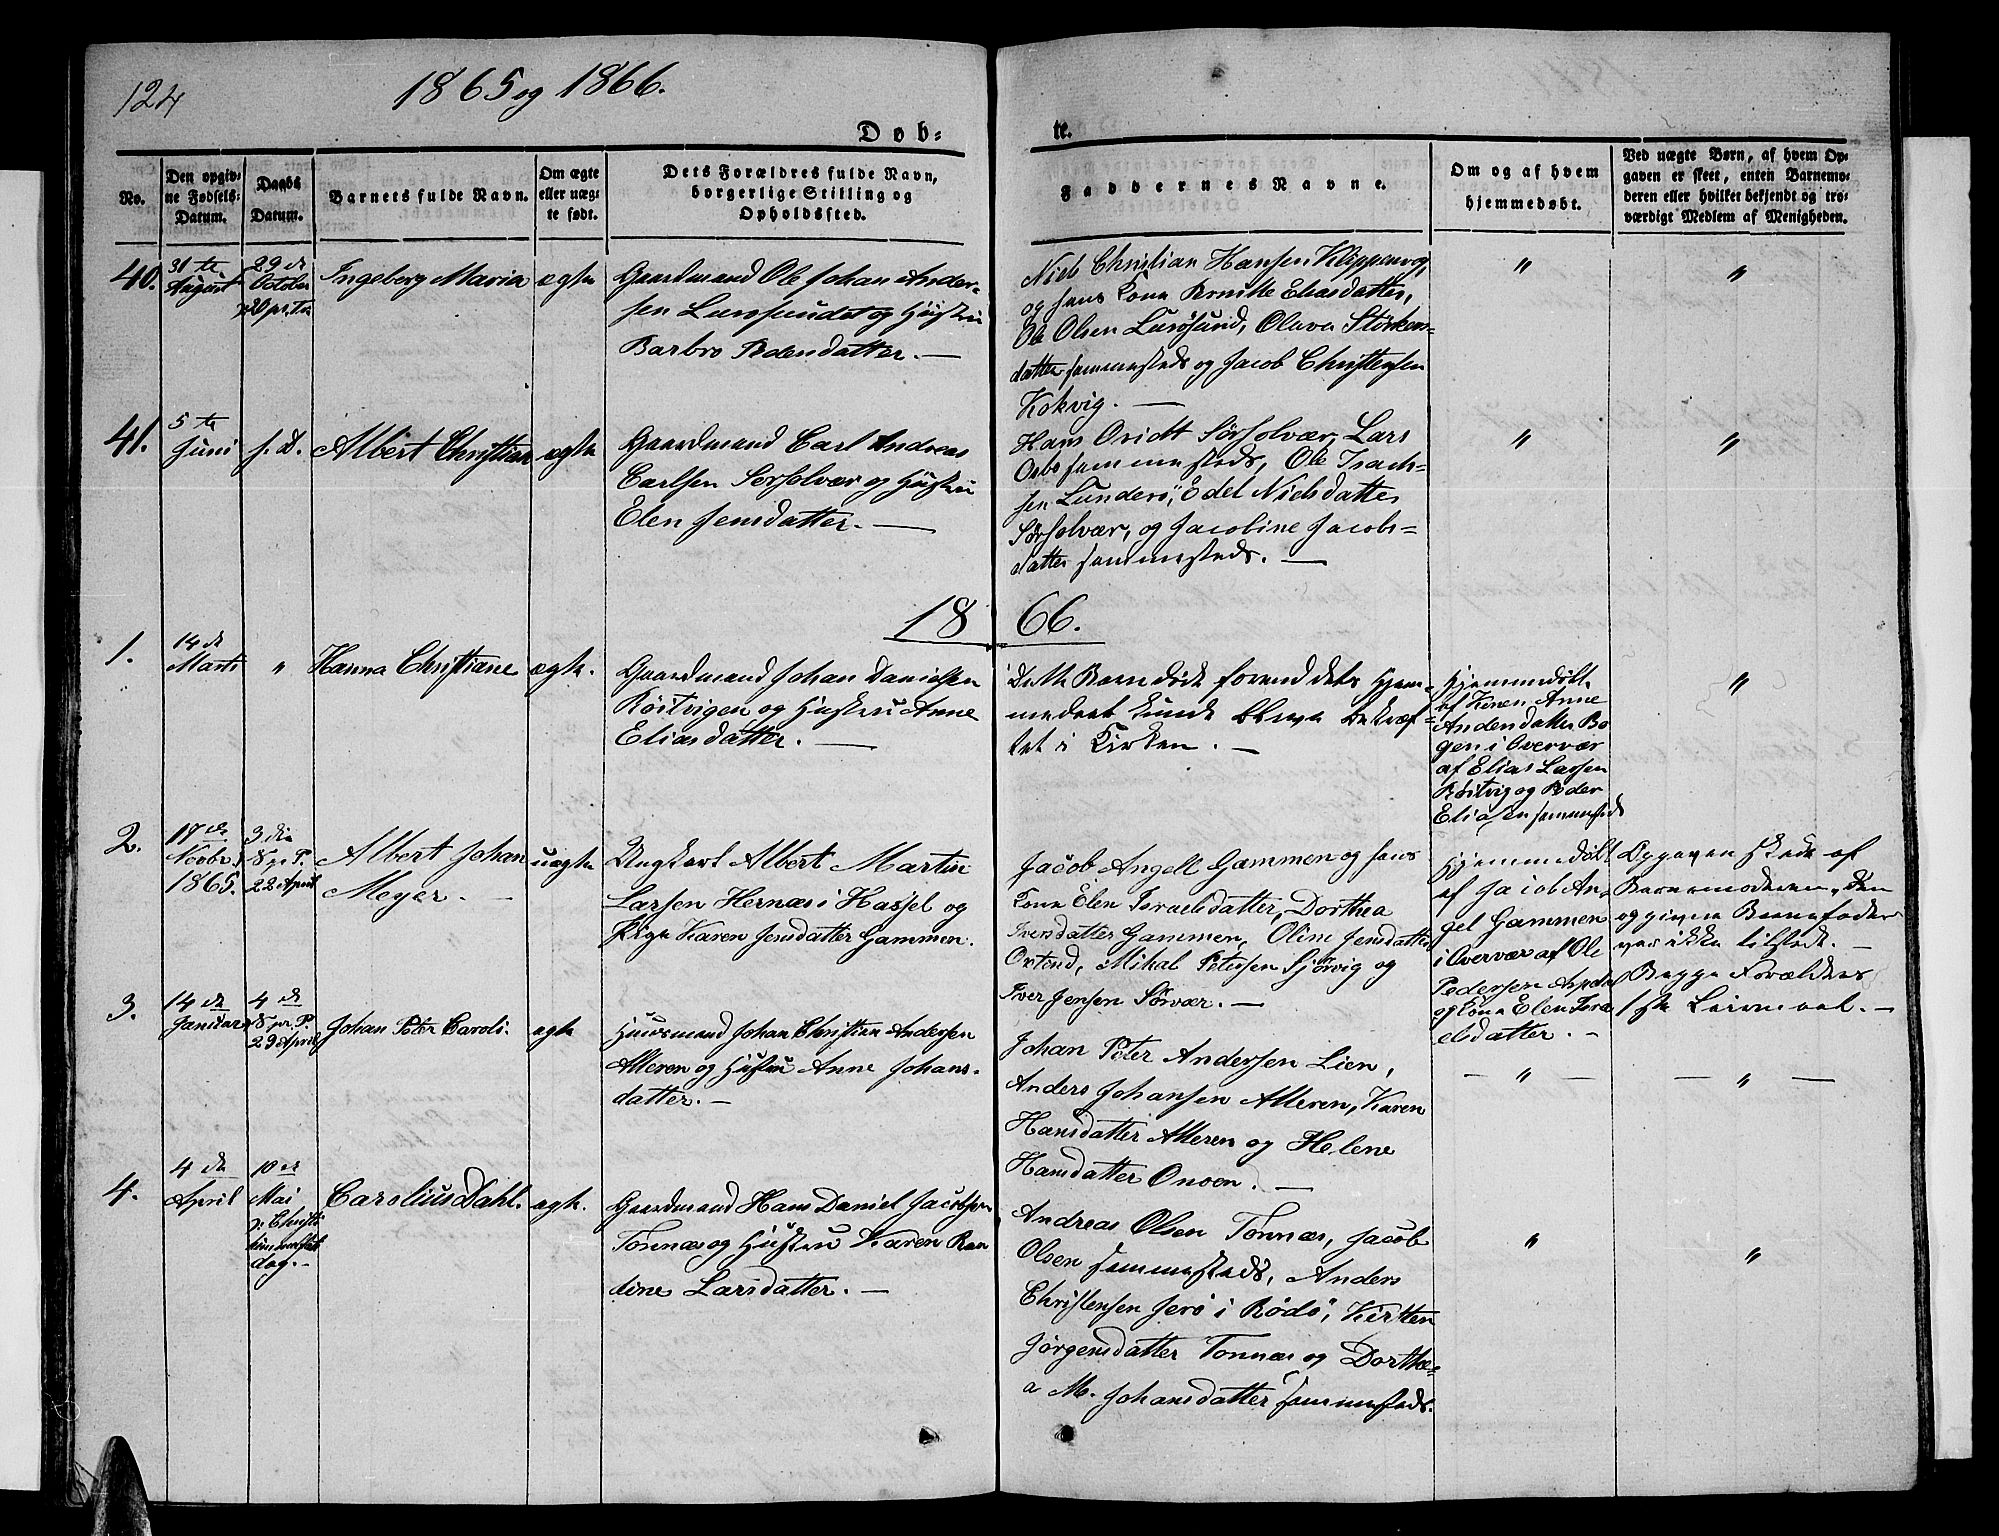 124
1865 og 1866.
Døb-
te.
No.
Den opgiv-
ne Fødsels-
Datum.
Daabs
Datum.
Barnets fulde Navn.
Om ægte
eller uæg-
te født.
Dets Forældres fulde Navn,
borgerlige Stilling og
Opholdssted.
Faddernes Navne.
Om og af hvem
hjemmedøbt.
Ved uægte Børn, af hvem Op-
gaven er skeet, enten Barnemo-
deren eller hvilket bekjendt og tro-
værdigt Medlem af Menigheden.
40.
31te
August
29de
October
Ingeberg Maria
ægte
Gaardmand Ole Johan Ander-
sen Lurøsundet og Hustru
Barbro Pedersdatter. —
Niels Christian Hansen Klippenvog,
og hans Kone Bernitte Eliasdatter,
Ole Olsen Lurøsund, Oluva Størkers-
datter sammesteds og Jacob Christensen
Kokvig. —
"
"
41.
5te
Juni
s. D.
Albert Christian
ægte
Gaardmand Carl Andreas
Carlsen Sørsolvær og Hustru
Elen Jensdatter. —
Hans Sørsolvær, Lars
sammesteds, Ole Isach-
sen Lunderø, Edel Nielsdatter
Sørsolvær, og Jacobine Jacobs-
datter sammesteds. —
"
"
1866.
1.
14de
Marts
"
Hanna Christiane
ægte.
Gaardmand Johan Danielsen
Røstvigen og Hustru Anne
Eliasdatter. —
Dette Barn døde forend dets Hjem-
medaab kunde blive bekræf-
tet i Kirken. —
Hjemmedøbt
af Konen Anne
Andersdatter Bo-
gen i Overvær
af Elias Larsen
Røstvig og Peder
Eliasen sammesteds
"
2.
17de
Novbr.
1865.
3die
S. p. P.
22 April
Albert Johan
Meyer. —
uægte
Ungkarl Albert Martin
Larsen Hernæs i Hassel og
Pige Karen Jensdatter Gammen.
Jacob Angell Gammen og hans
Kone Elen Israelsdatter, Dorthea
Iversdatter Gammen, Oline Jensdatter
Mikal Petersen Sjörvig og
Iver Jensen Sørvær. —
Hjemmedøbt
af Jacob An-
gel Gammen
i Overvær af Ole
Pedersen
og Kone Elen Isra-
elsdatter. —
Opgaven skede af
Barnemoderen, den
opgivne Barnefader
var ikke tilstede. —
Begge Forældres
1ste Leiermaal. —
3.
14de
Januar
4de
S. p. P.
29 April
Johan Peter Caroli.
ægte
Huusmand Johan Christian Andersen
Alleren og Hustru Anne Johans-
datter. —
Johan Peter Andersen Lien,
Anders Johansen Alleren, Karen
Hansdatter Alleren og Helene
Hansdatter Onøen. —
— " —
— " —
4.
4de
April
10de
Mai
p. Christi
himmelfart
dag. —
Carolius Dahl.
ægte.
Gaardmand Hans Daniel Jacobsen
Tonnæs og Hustru Karen Ran-
dine Larsdatter. —
Andreas Olsen Tonnæs, Jacob
Olsen sammesteds, Anders
Christensen Jerø i Rødø, Kirsten
Jørgensdatter Tonnæs og Dorthe-
a M. Johansdatter sammesteds.
"
"